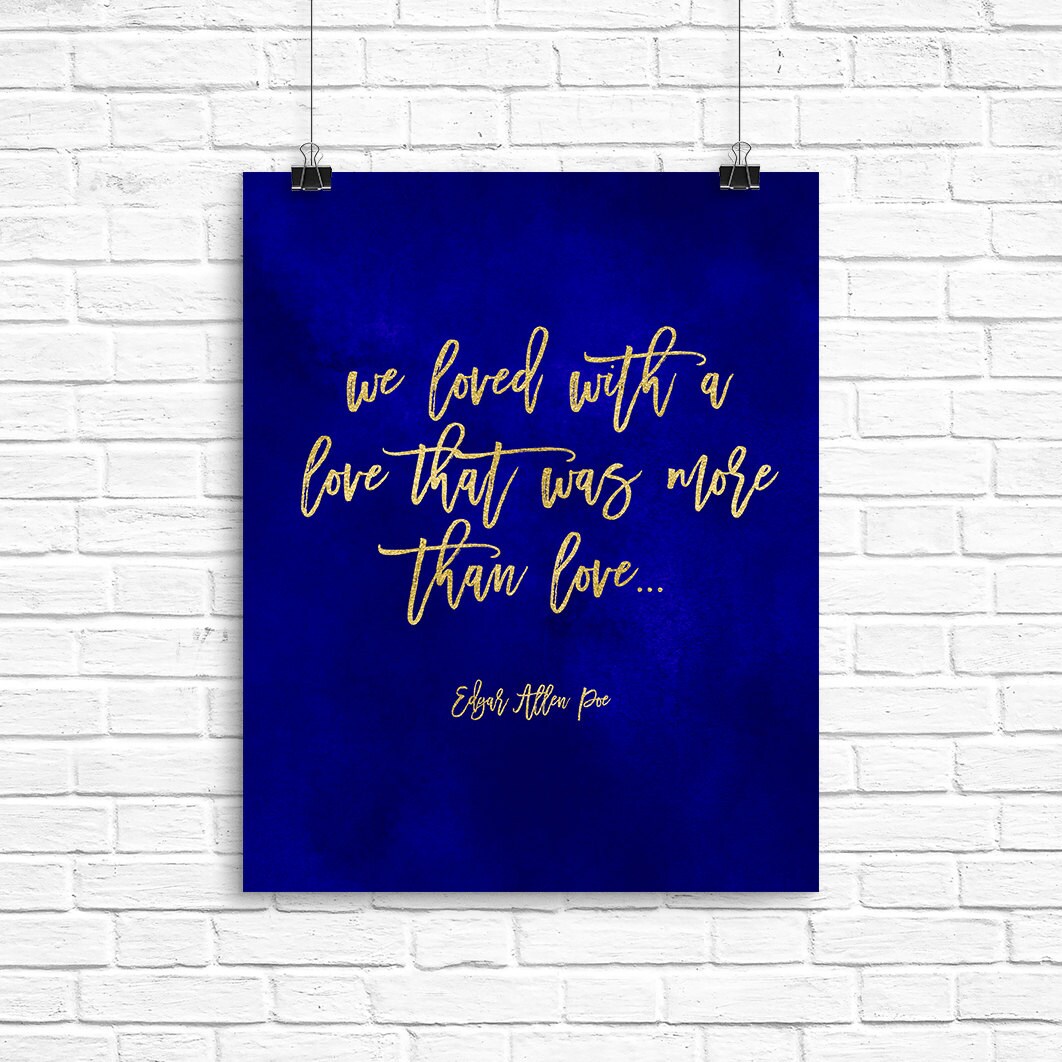 we loved with a
love that was more
than love...
Edgar Allen Poe